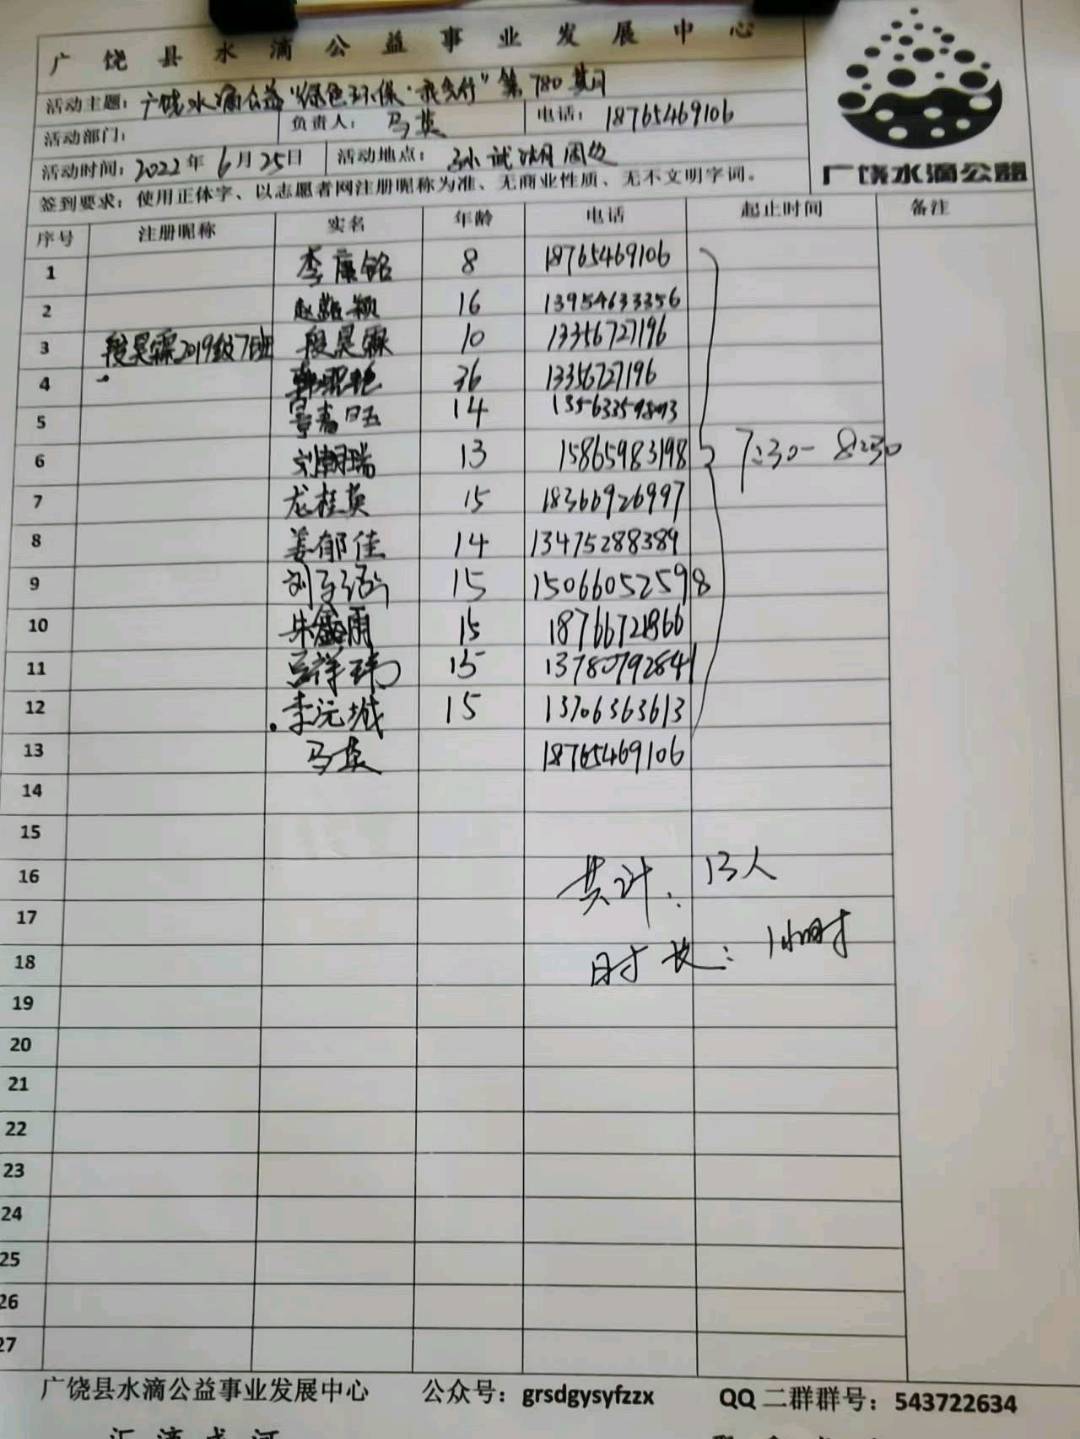 广饶县水滴公益事业发展中心
活动主题：广饶水滴公益"绿色环保·我先行"第780期
活动部门： 负责人：马英 电话：18765469106
活动时间：2022年6月25日 活动地点：孙武湖周边
签到要求：使用正体字、以志愿者网注册昵称为准、无商业性质、无不文明字词。
广饶水滴公益
序号 注册昵称 实名 年龄 电话 起止时间 备注
1 李康铭 8 18765469106
2 赵 颖 16 13954633356
3 段昊霖2019级7班 段昊霖 10 13356727196
4 36 13356727196
5 14
6 刘朝瑞 13 15865983198 7:30-8:30
7 龙桂英 15 18366926997
8 姜郁佳 14 13475288389
9 刘子 15 15066052598
10 朱 雨 15
11 吕祥玮 15 13780792841
12 李沅城 15 13706363613
13 马英 18765469106
14
15
16 共计：13人
17
18 时长：1小时
19
20
21
22
23
24
25
26
27
广饶县水滴公益事业发展中心 公众号：grsdgysyfzzx QQ二群群号：543722634
汇滴成河